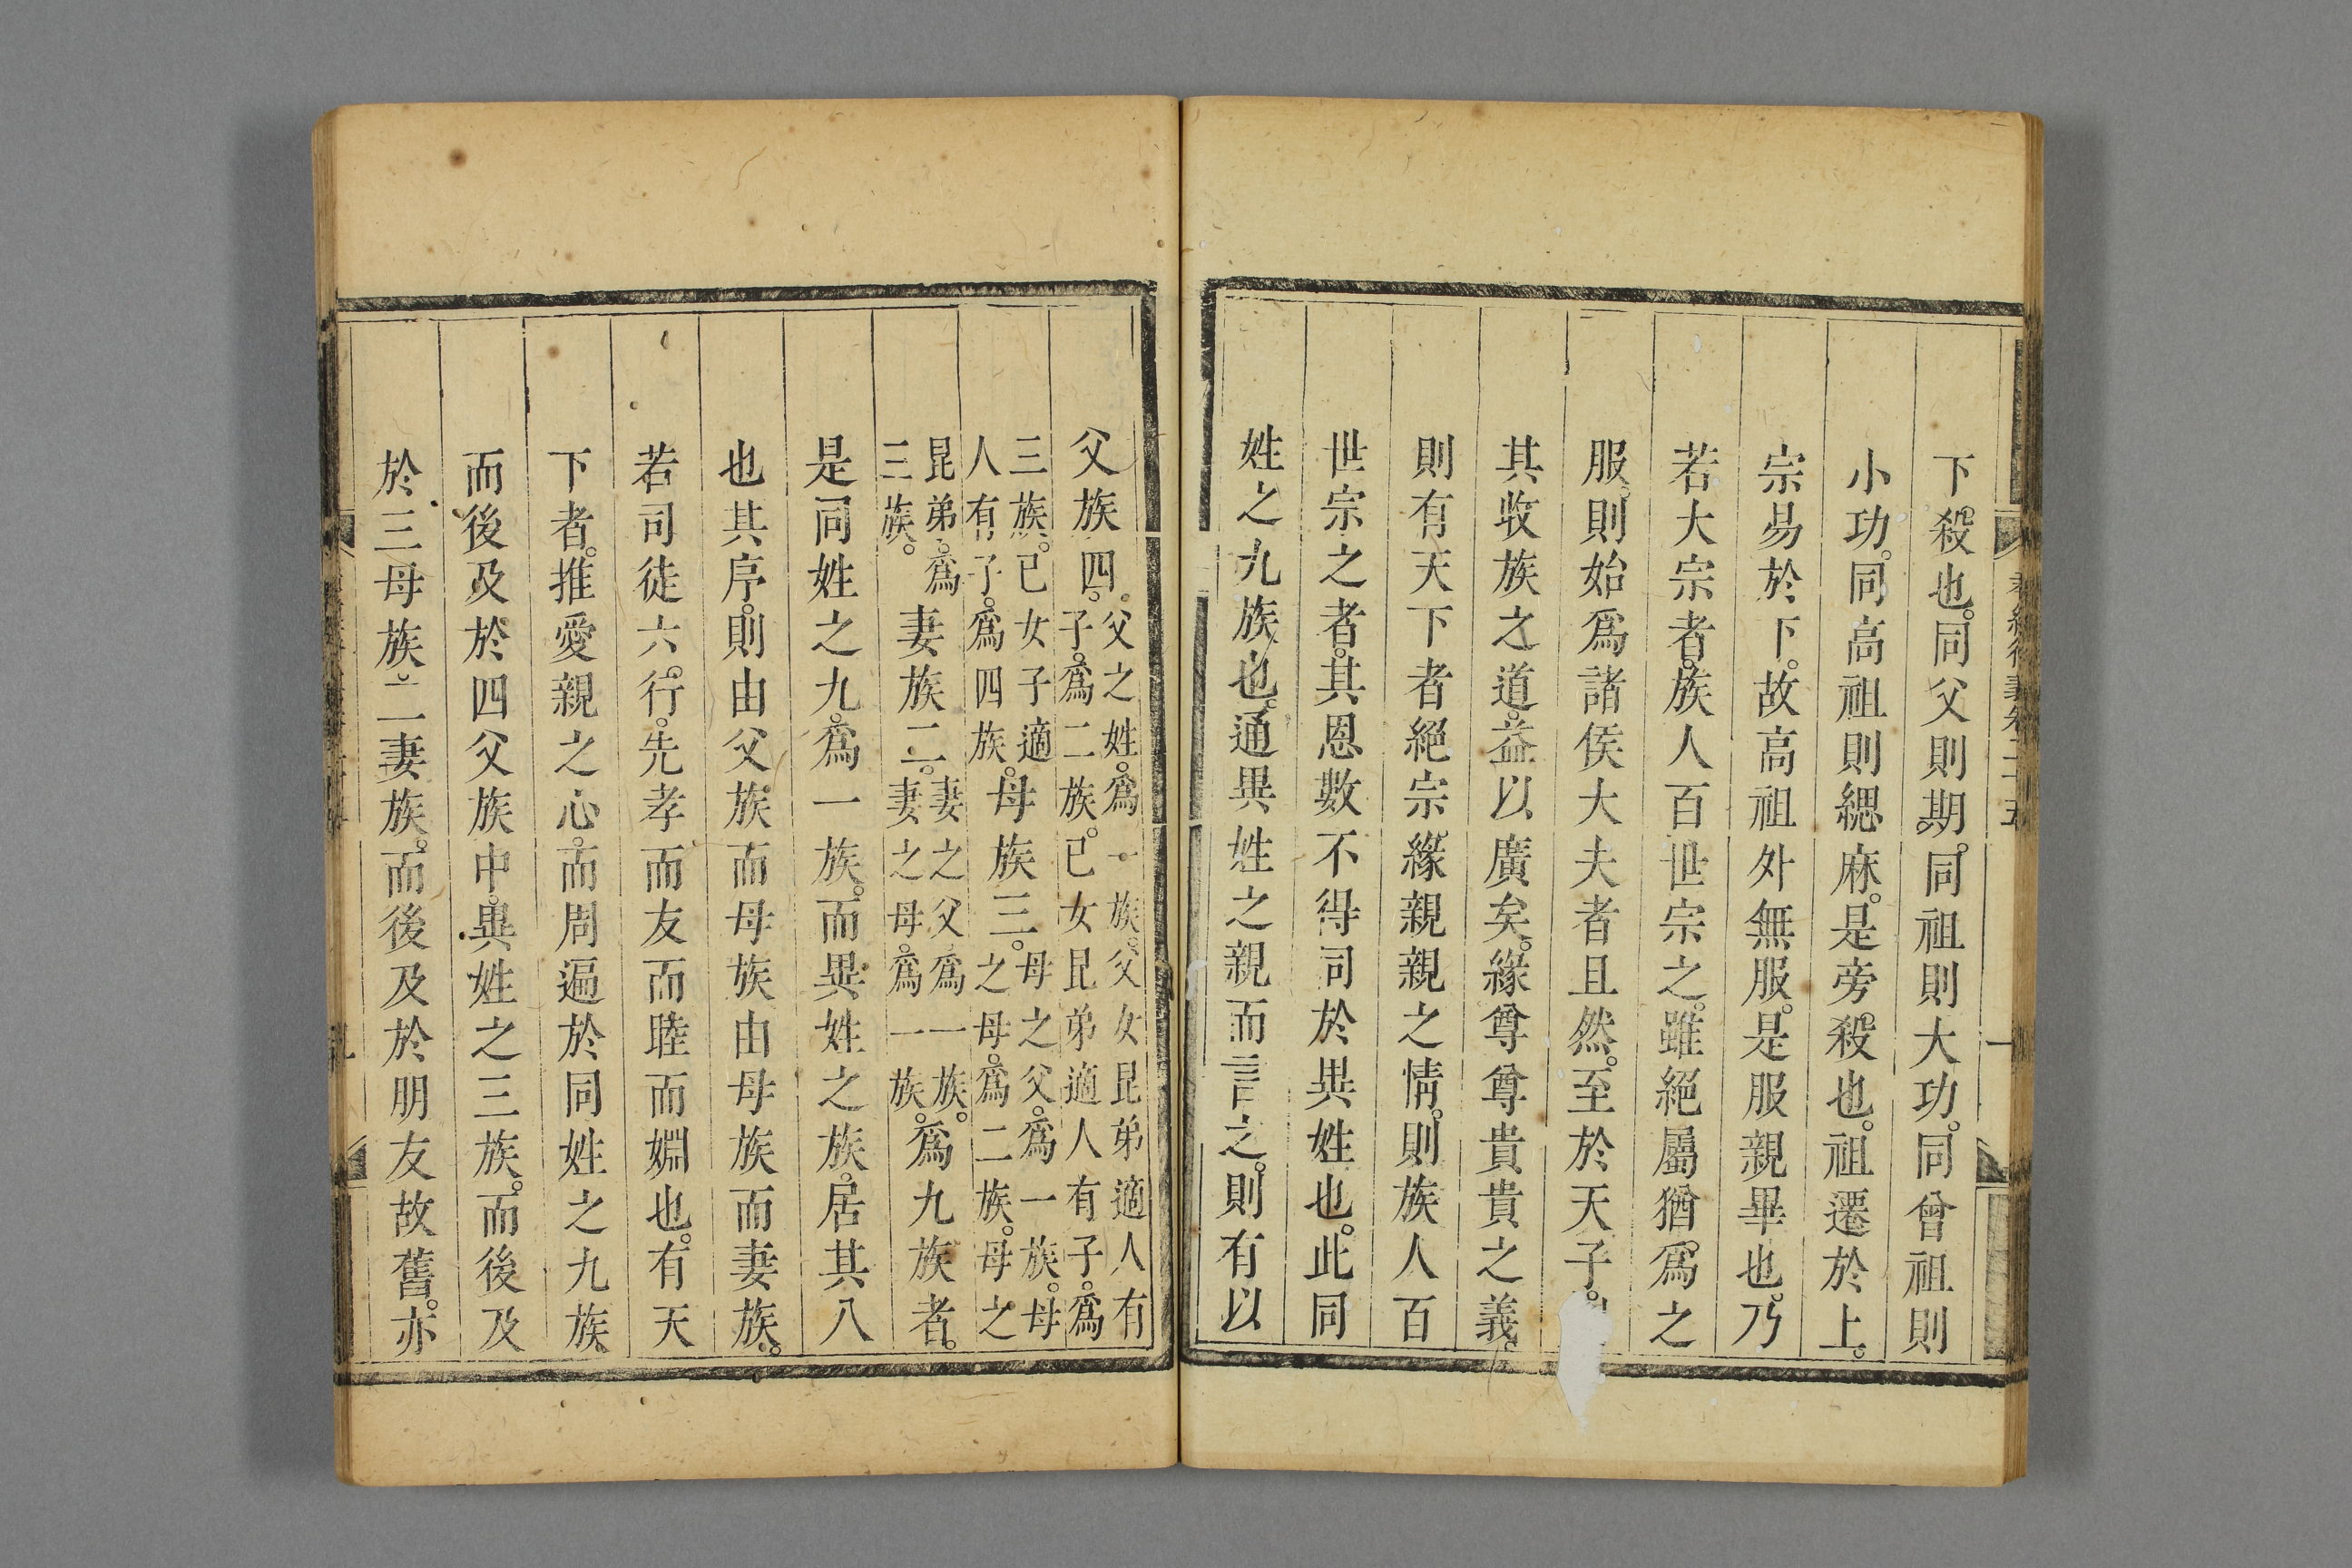 下殺也。同父則期。同祖則大功。同曾祖則
小功。同高祖則緦麻。是旁殺也。祖遷於上。
宗易於下。故高祖外無服。是服親畢也。乃
若大宗者。族人百世宗之。雖絕屬猶爲之
服。則始爲諸侯大夫者且然。至於天子。
其收族之道。益以廣矣。緣尊尊貴貴之義。
則有天下者絕宗。緣親親之情。則族人百
世宗之者。其恩數不得同於異姓也。此同
姓之九族也。通異姓之親而言之。則有以
父族四。父之姓。爲一族。父女昆弟適人有
子。爲二族。已女昆弟適人有子。爲
三族。已女子適
人有子。爲四族。母族三。母之父。爲一族。母
之母。爲二族。母之
昆弟。爲
三族。妻族二。妻之父爲一族。
妻之母。爲一族。爲九族者。
是同姓之九。爲一族。而異姓之族。居其八
也其序。則由父族而母族由母族而妻族。
若司徒六行。先孝而友而睦而婣也。有天
下者。推愛親之心。而周遍於同姓之九族。
而後及於四父族中。異姓之三族。而後及
於三母族。二妻族。而後及於朋友故舊。亦